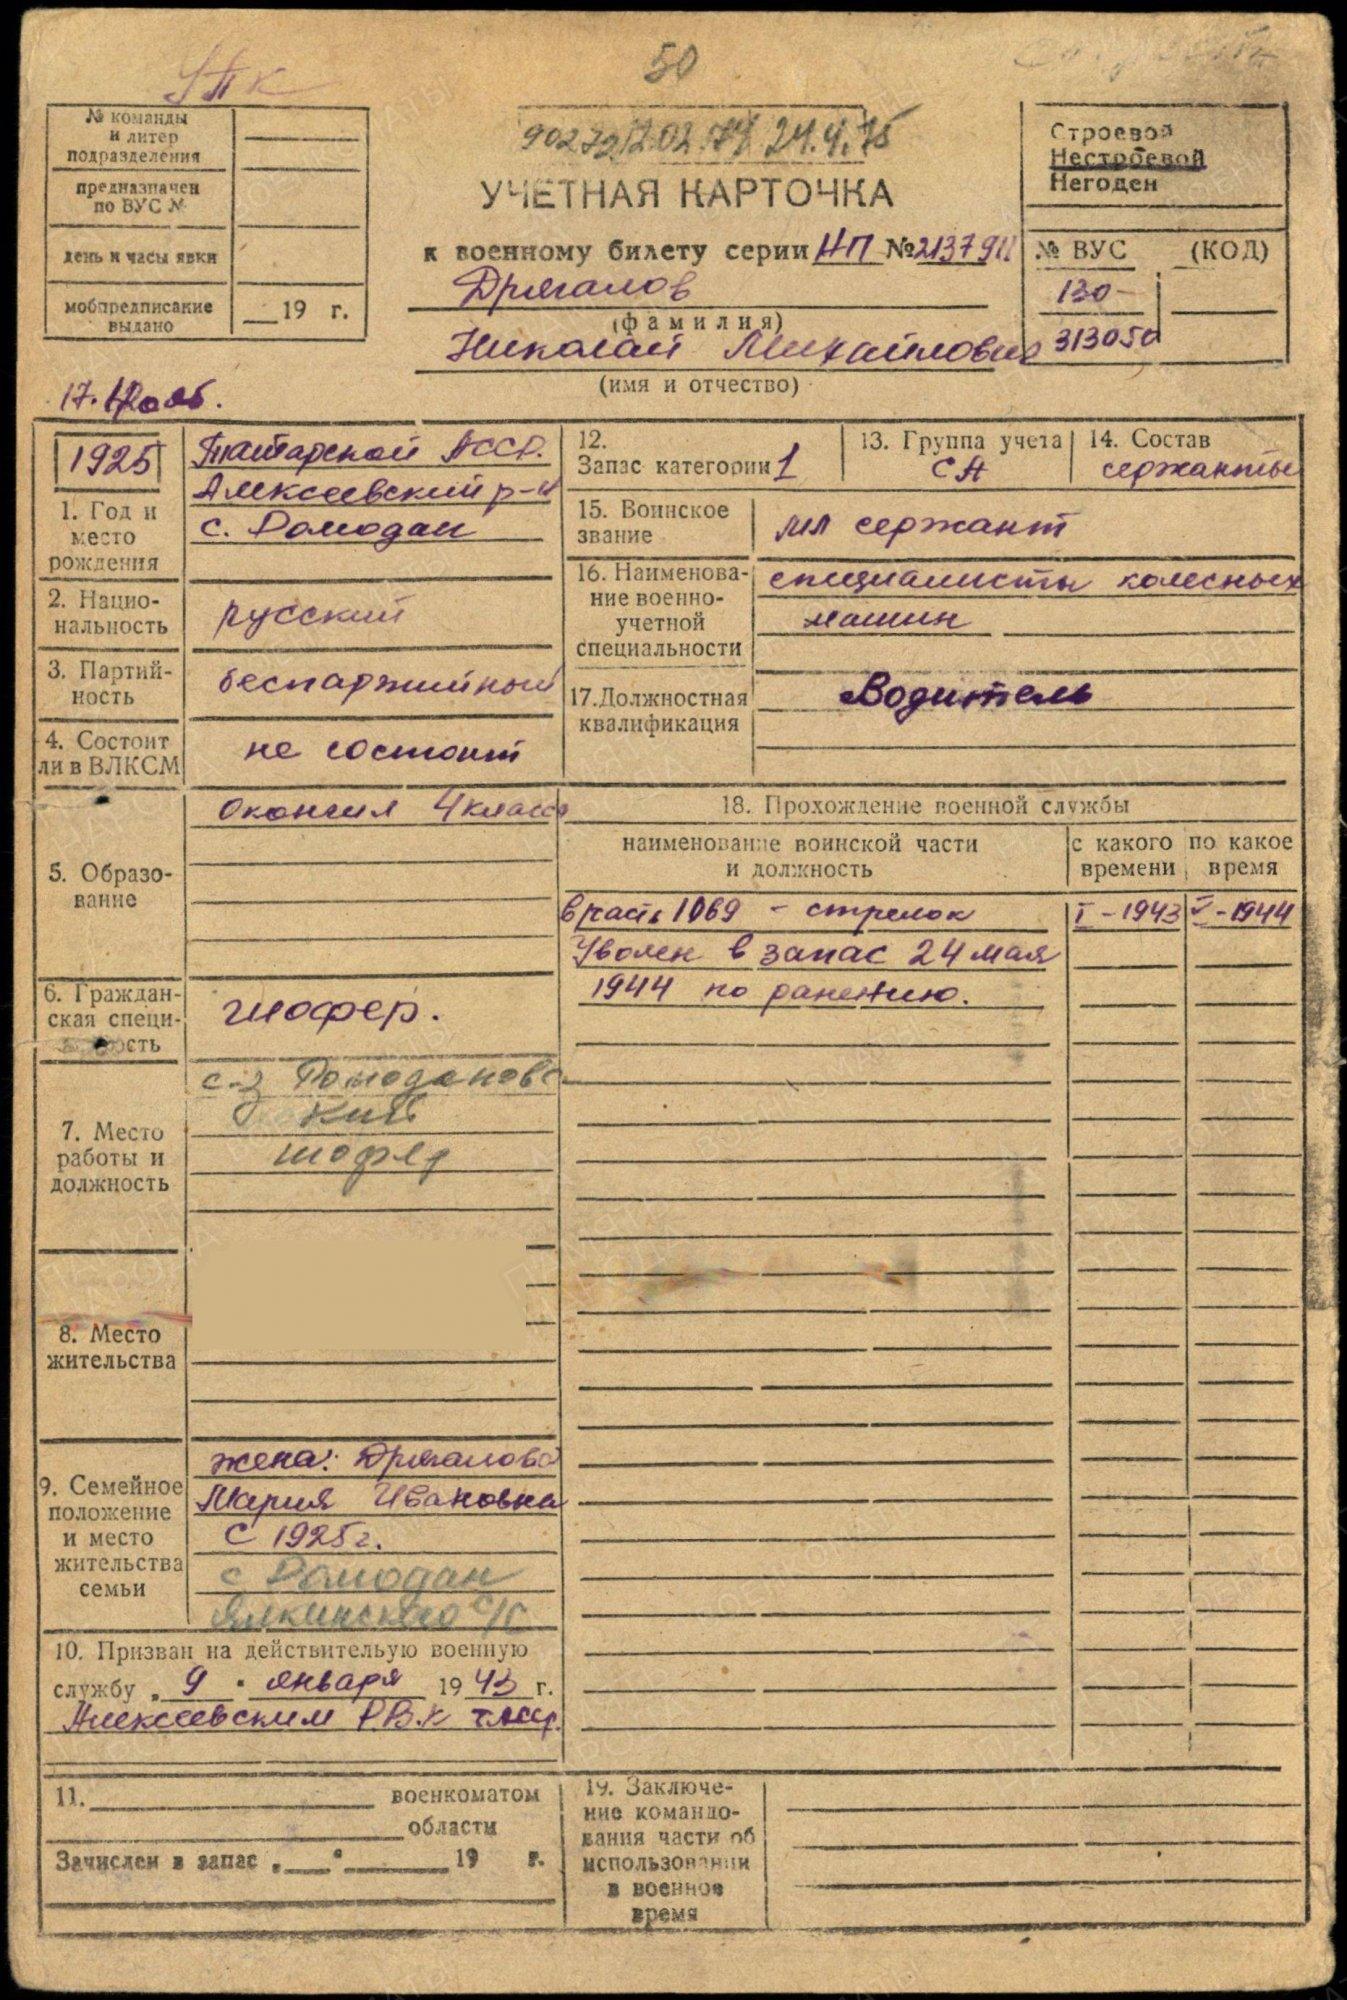 УПК
50
№ команды
и литер
подразделения
предназначен
по ВУС №
день и часы явки
мобпредписание
выдано
19 г.
24.4.75
УЧЕТНАЯ КАРТОЧКА
к военному билету серии НП №2137911
Дрягалов
(фамилия)
Николай Михайлович
(имя и отчество)
Строевой
Нестроевой
Негоден
№ ВУС (КОД)
130-
313050
17. нояб.
1925
1. Год и
место
рождения
Татарской АССР.
Алексеевский р-н
с. Ромодан
2. Нацио-
нальность
русский
3. Партий-
ность
беспартийный
4. Состоит
ли в ВЛКСМ
не состоит
5. Образо-
вание
Окончил 4 класс
6. Граждан-
ская специ-
ость
шофер.
7. Место
работы и
должность
с-з Ромодановс
кий
шофер
8. Место
жительства
9. Семейное
положение
и место
жительства
семьи
жена: Дрягалова
Мария Ивановна
с 1925г.
с Ромодан
Ялкинского с/с
10. Призван на действительую военную
службу „ 9 " января 19 43 г.
Алексеевским РВК ТАССР.
11. военкоматом
области
Зачислен в запас „ " 19 г.
12.
Запас категории 1
13. Группа учета
СА
14. Состав
сержанты
15. Воинское
звание
мл сержант
16. Наименова-
ние военно-
учетной
специальности
специалисты колесных
машин
17. Должностная
квалификация
Водитель
18. Прохождение военной службы
наименование воинской части
и должность
с какого
времени
по какое
время
в часть 1069 - стрелок I - 1943 V - 1944
Уволен в запас 24 мая
1944 по ранению.
19. Заключе-
ние командо-
вания части об
использовании
в военное
время